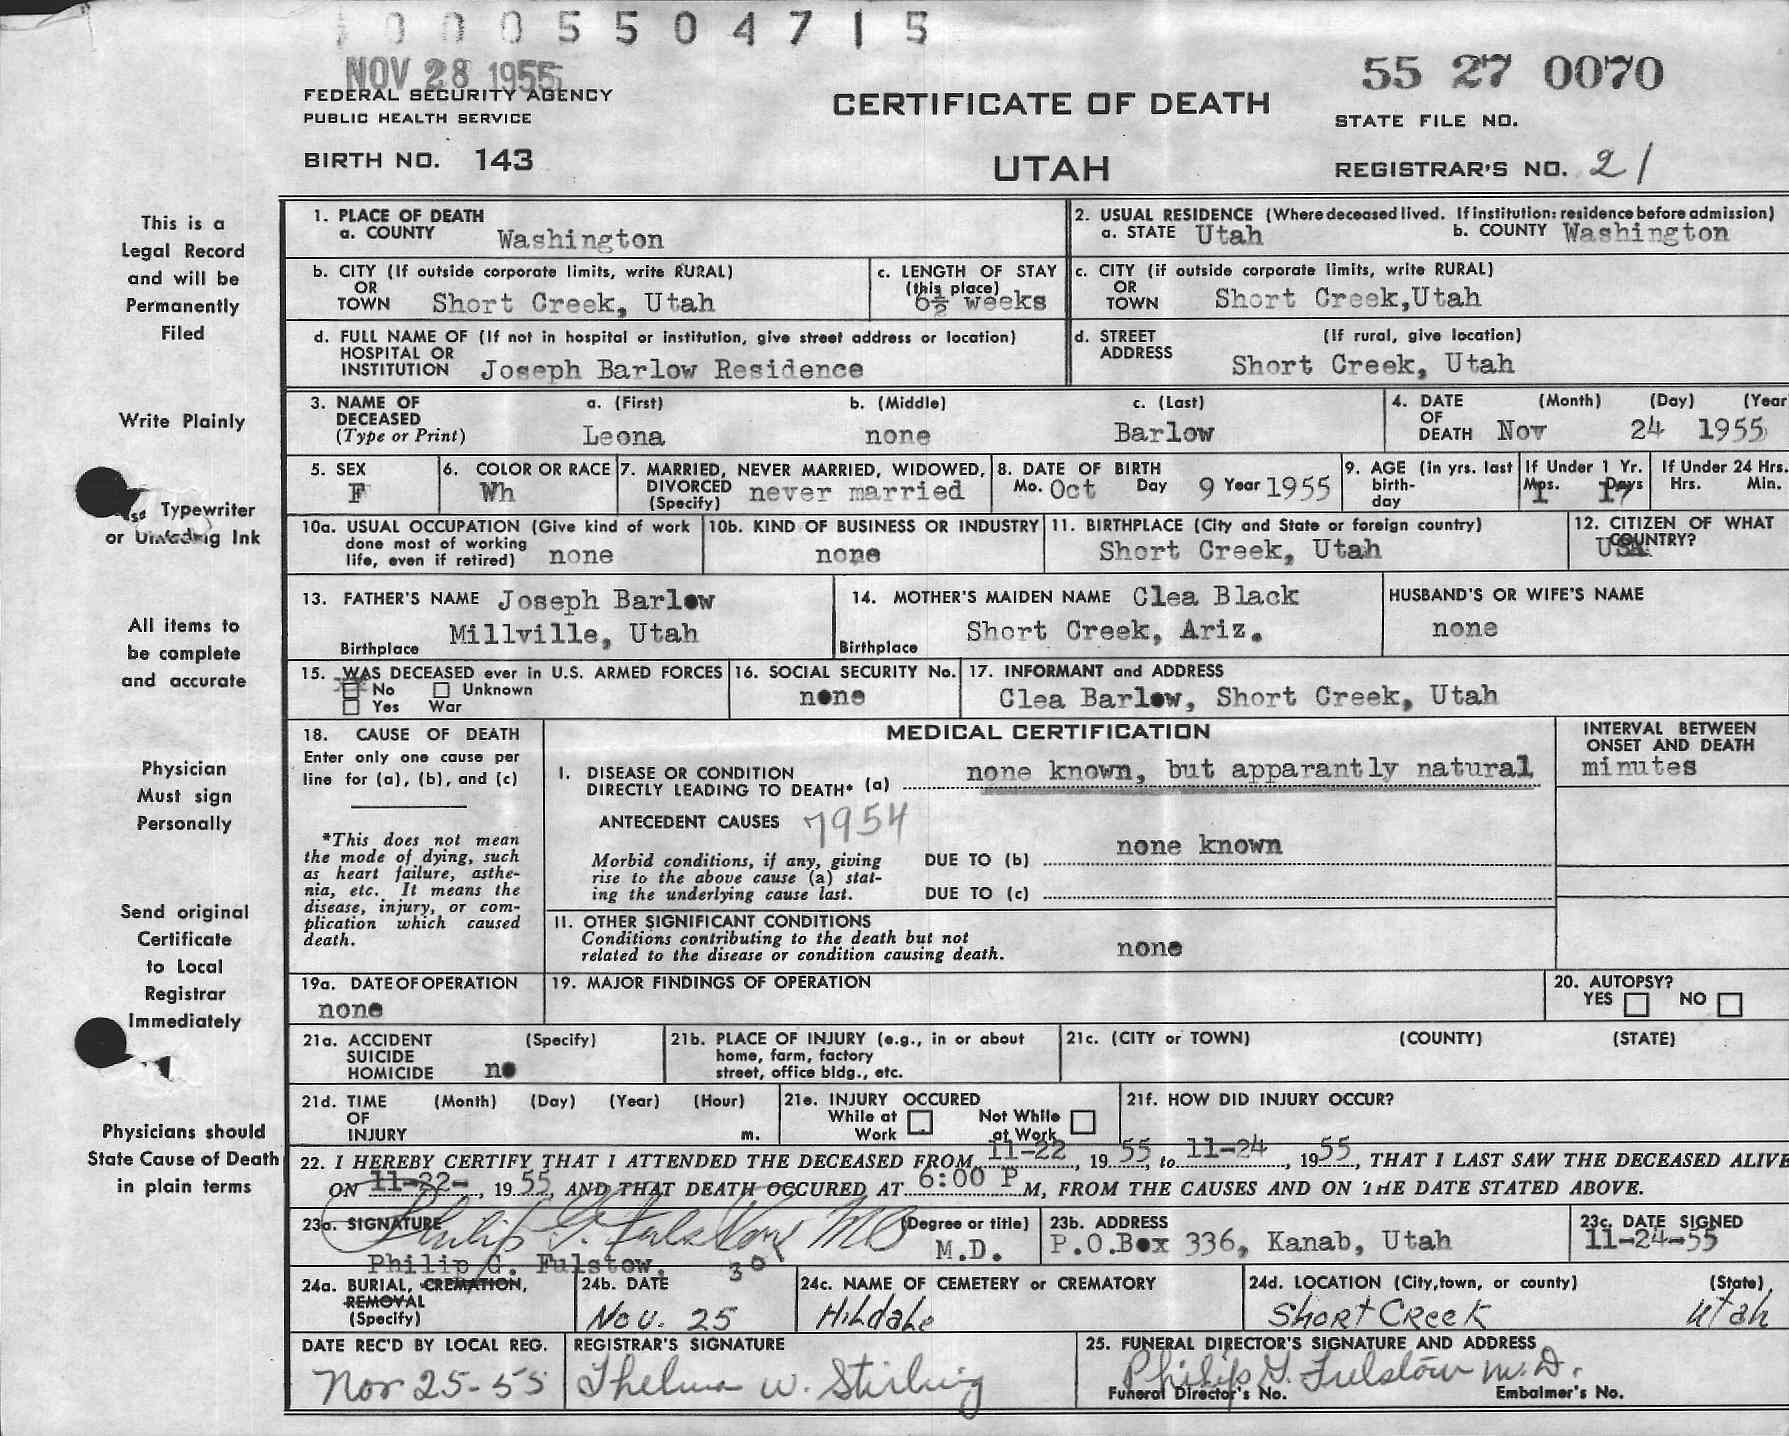 0005504715
NOV 28 1955
55 27 0070
FEDERAL SECURITY AGENCY
PUBLIC HEALTH SERVICE
CERTIFICATE OF DEATH
STATE FILE NO.
BIRTH NO. 143
UTAH
REGISTRAR'S NO. 21
This is a
Legal Record
and will be
Permanently
Filed
Write Plainly
Typewriter
or Unfading Ink
All items to
be complete
and accurate
Physician
Must sign
Personally
Send original
Certificate
to Local
Registrar
Immediately
Physicians should
State Cause of Death
in plain terms
1. PLACE OF DEATH
a. COUNTY Washington
2. USUAL RESIDENCE (Where deceased lived. If institution: residence before admission)
a. STATE Utah b. COUNTY Washington
b. CITY (If outside corporate limits, write RURAL)
OR
TOWN Short Creek, Utah
c. LENGTH OF STAY
(this place)
6½ weeks
c. CITY (if outside corporate limits, write RURAL)
OR
TOWN Short Creek,Utah
d. FULL NAME OF (If not in hospital or institution, give street address or location)
HOSPITAL OR
INSTITUTION Joseph Barlow Residence
d. STREET (If rural, give location)
ADDRESS Short Creek, Utah
3. NAME OF
DECEASED
(Type or Print)
a. (First) b. (Middle) c. (Last)
Leona none Barlow
4. DATE (Month) (Day) (Year
OF
DEATH Nov 24 1955
5. SEX
F
6. COLOR OR RACE
Wh
7. MARRIED, NEVER MARRIED, WIDOWED,
DIVORCED
(Specify) never married
8. DATE OF BIRTH
Mo. Oct Day 9 Year 1955
9. AGE (in yrs. last
birth-
day
If Under 1 Yr.
Mos. Days
1 17
If Under 24 Hrs.
Hrs. Min.
10a. USUAL OCCUPATION (Give kind of work
done most of working
life, even if retired) none
10b. KIND OF BUSINESS OR INDUSTRY
none
11. BIRTHPLACE (City and State or foreign country)
Short Creek, Utah
12. CITIZEN OF WHAT
COUNTRY?
USA
13. FATHER'S NAME Joseph Barlow
Birthplace Millville, Utah
14. MOTHER'S MAIDEN NAME Clea Black
Birthplace Short Creek, Ariz.
HUSBAND'S OR WIFE'S NAME
none
15. WAS DECEASED ever in U.S. ARMED FORCES
No Unknown
Yes War
16. SOCIAL SECURITY No.
none
17. INFORMANT and ADDRESS
Clea Barlow, Short Creek, Utah
18. CAUSE OF DEATH
Enter only one cause per
line for (a), (b), and (c)
*This does not mean
the mode of dying, such
as heart failure, asthe-
nia, etc. It means the
disease, injury, or com-
plication which caused
death.
MEDICAL CERTIFICATION
INTERVAL BETWEEN
ONSET AND DEATH
minutes
I. DISEASE OR CONDITION
DIRECTLY LEADING TO DEATH* (a) none known, but apparantly natural
ANTECEDENT CAUSES 7954
Morbid conditions, if any, giving
rise to the above cause (a) stat-
ing the underlying cause last.
DUE TO (b) none known
DUE TO (c)
II. OTHER SIGNIFICANT CONDITIONS
Conditions contributing to the death but not
related to the disease or condition causing death.
none
19a. DATE OF OPERATION
none
19. MAJOR FINDINGS OF OPERATION
20. AUTOPSY?
YES NO
21a. ACCIDENT (Specify)
SUICIDE
HOMICIDE no
21b. PLACE OF INJURY (e.g., in or about
home, farm, factory
street, office bldg., etc.
21c. (CITY or TOWN) (COUNTY) (STATE)
21d. TIME (Month) (Day) (Year) (Hour)
OF
INJURY m.
21e. INJURY OCCURED
While at Work Not While at Work
21f. HOW DID INJURY OCCUR?
22. I HEREBY CERTIFY THAT I ATTENDED THE DECEASED FROM 11-22, 1955, to 11-24, 1955, THAT I LAST SAW THE DECEASED ALIVE
ON 11-22-, 1955, AND THAT DEATH OCCURED AT 6:00 P M, FROM THE CAUSES AND ON THE DATE STATED ABOVE.
23a. SIGNATURE (Degree or title)
Philip G. Fulstow MD
Philip G. Fulstow, M.D.
30
23b. ADDRESS
P.O.Box 336, Kanab, Utah
23c. DATE SIGNED
11-24-55
24a. BURIAL, CREMATION,
REMOVAL
(Specify)
24b. DATE
Nov. 25
24c. NAME OF CEMETERY or CREMATORY
Hildale
24d. LOCATION (City,town, or county) (State)
Short Creek Utah
DATE REC'D BY LOCAL REG.
Nov 25-55
REGISTRAR'S SIGNATURE
Thelma W. Stirling
25. FUNERAL DIRECTOR'S SIGNATURE AND ADDRESS
Philip G. Fulstow M.D.
Funeral Director's No. Embalmer's No.